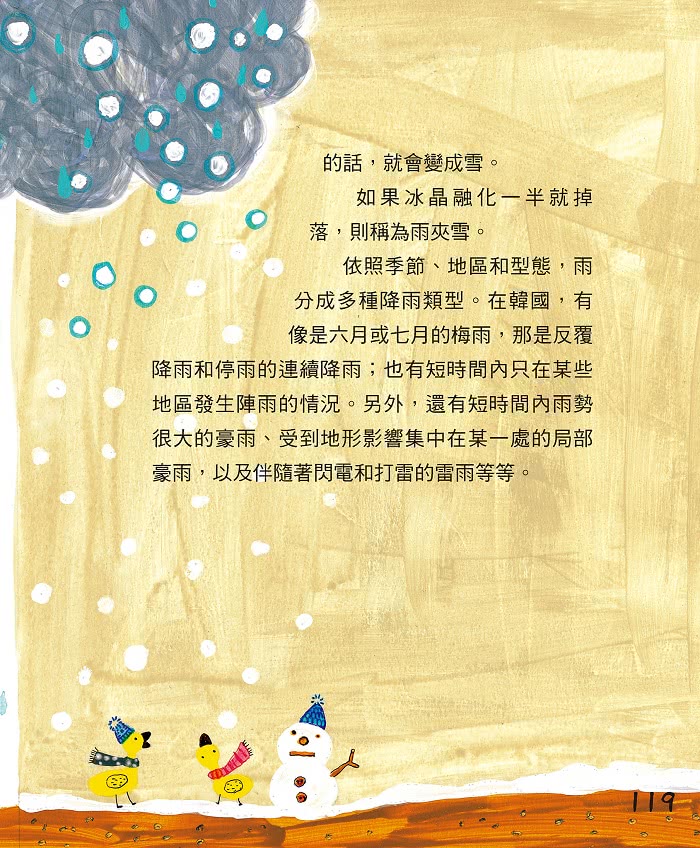 的話，就會變成雪。
如果冰晶融化一半就掉
落，則稱為雨夾雪。
依照季節、地區和型態，雨
分成多種降雨類型。在韓國，有
像是六月或七月的梅雨，那是反覆
降雨和停雨的連續降雨；也有短時間內只在某些
地區發生陣雨的情況。另外，還有短時間內雨勢
很大的豪雨、受到地形影響集中在某一處的局部
豪雨，以及伴隨著閃電和打雷的雷雨等等。
119